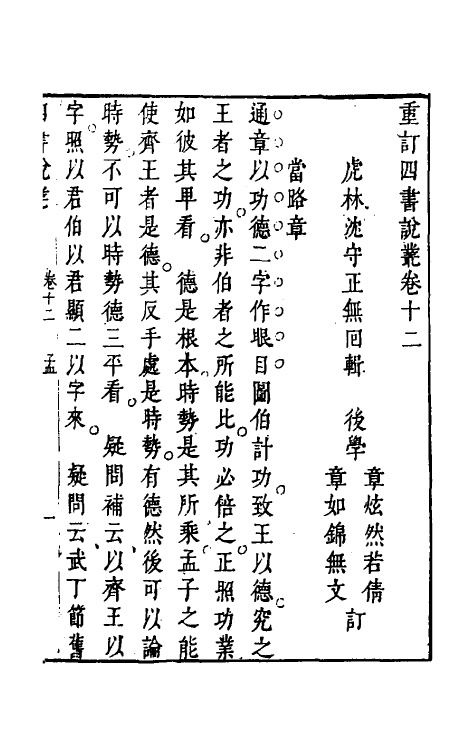 重訂四書說叢卷十二
虎林沈守正無回輯　後學
章炫然若倩
章如錦無文
訂
當路章
通章以功德二字作眼目圖伯計功致王以德究之
王者之功亦非伯者之所能比功必倍之正照功業
如彼其卑看　德是根本時勢是其所乘孟子之能
使齊王者是德其反手處是時勢有德然後可以論
時勢不可以時勢德三平看　疑問補云以齊王以
字照以君伯以君顯二以字來　疑問云武丁節舊
卷十二　孟　一